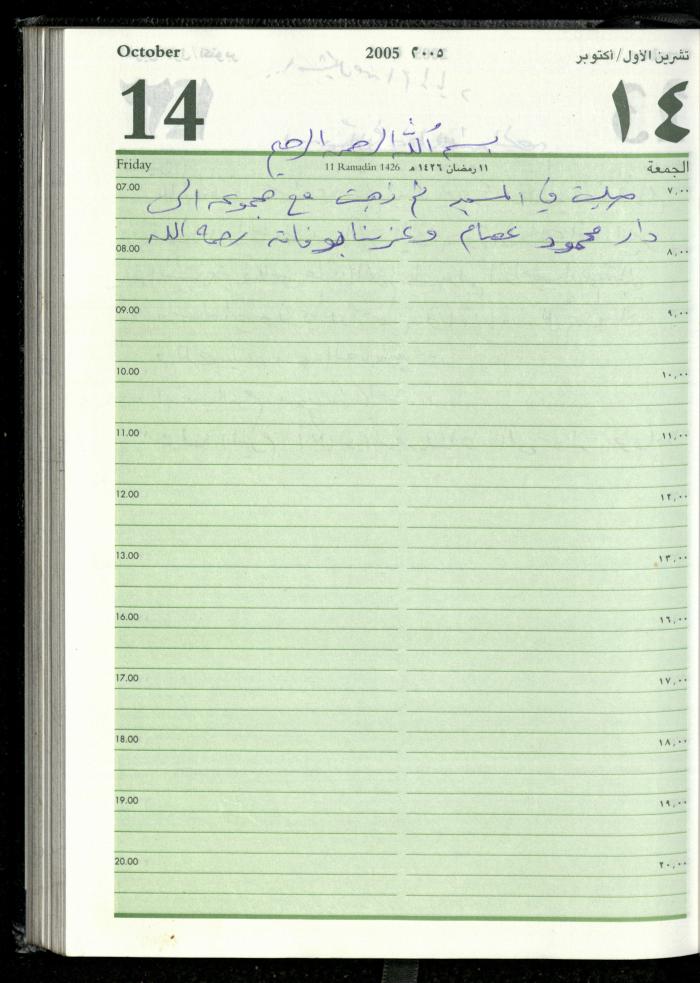 October 2005 ٢٠٠٥ تشرين الأول/أكتوبر
14 ١٤
بسم الله الرحمن الرحيم
Friday 11 Ramadān 1426 ١١ رمضان ١٤٢٦ هـ الجمعة
07.00 ٧,٠٠
صليت في المسجد ثم ذهبت مع مجموعة الى
دار محمود عصام وعزينا بوفاته رحمه الله
08.00 ٨,٠٠
09.00 ٩,٠٠
10.00 ١٠,٠٠
11.00 ١١,٠٠
12.00 ١٢,٠٠
13.00 ١٣,٠٠
16.00 ١٦,٠٠
17.00 ١٧,٠٠
18.00 ١٨,٠٠
19.00 ١٩,٠٠
20.00 ٢٠,٠٠